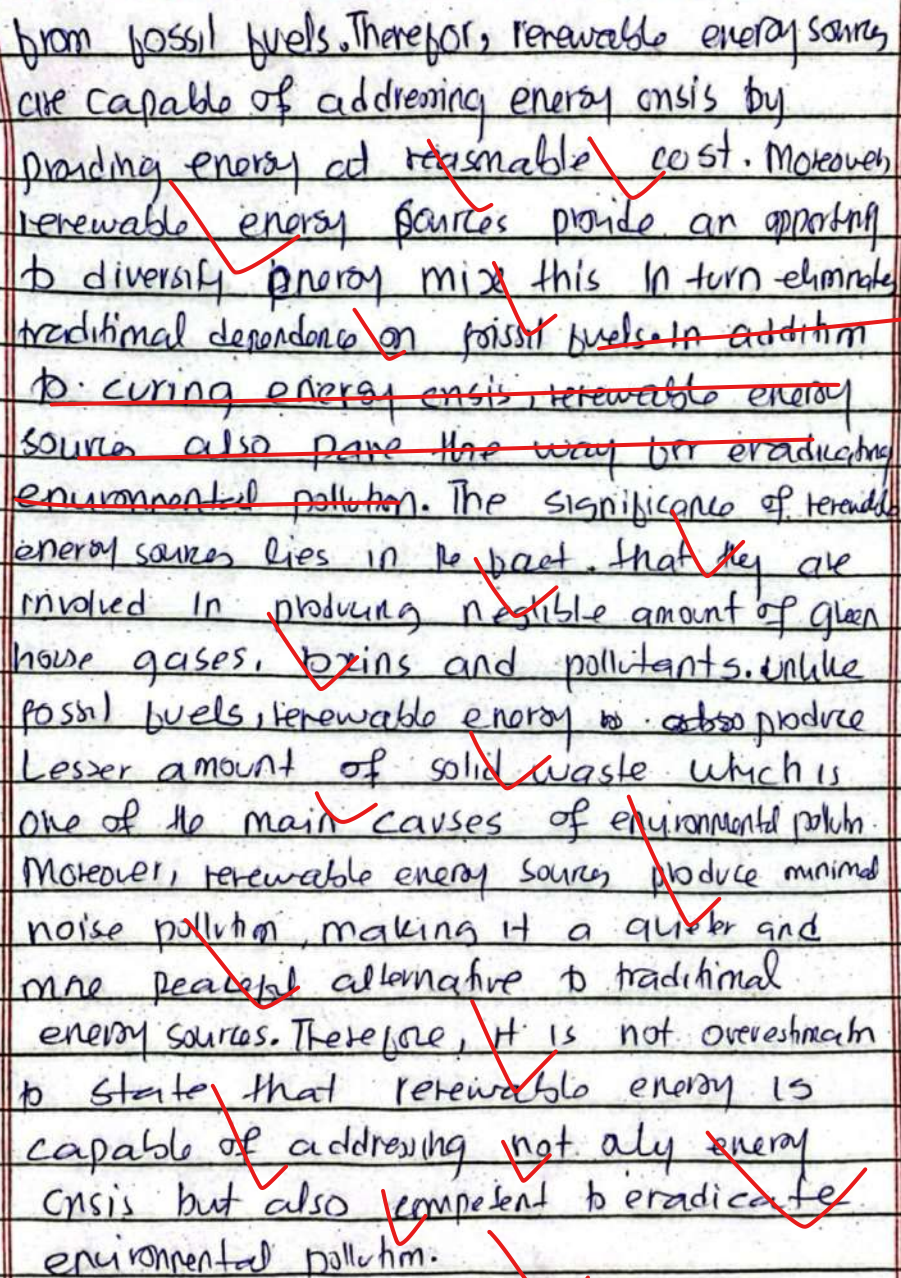 from fossil fuels. Therefor, renewable energy sources
are capable of addressing energy crisis by
providing energy at reasonable cost. Moreover,
renewable energy sources provide an opportunity
to diversify energy mix this in turn eliminates
traditional dependence on foissil fuels. In addition
to curing energy crisis, renewable energy
sources also pave the way for eradicating
environmental pollution. The significance of renewable
energy sources lies in the fact. that they are
involved in producing neglible amount of green
house gases, toxins and pollutants. unlike
fossil fuels, renewable energy produce
Lesser amount of solid waste which is
one of the main causes of environmental pollution.
Moreover, renewable energy sources produce minimal
noise pollution, making it a quieter and
more peaceful alternative to traditional
energy sources. Therefore, it is not overestimate
to state that renewable energy is
capable of addressing not only energy
crisis but also competent to eradicate
environmental pollution.